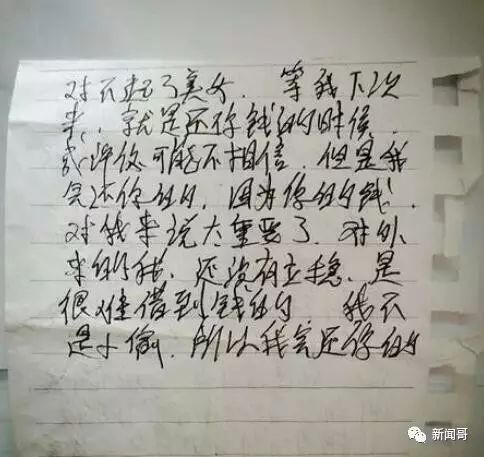 对不起了美女、等我下次
来、就是还你钱的时候、
或许你可能不相信、但是我
会还你的、因为你的钱、
对我来说太重要了、对外
来的我、还没有立稳、是
很难借到钱的、我不
是小偷、所以我会还你的
新闻哥